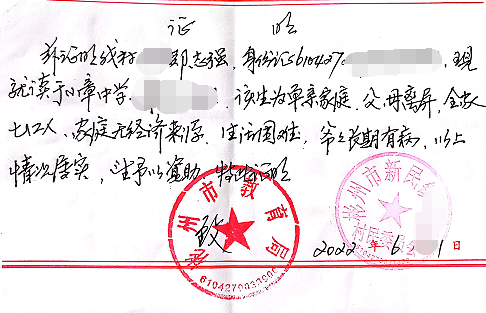 证 明
兹证明我村 邓志强，身份证610427 ，现
就读于 中学 ，该生为单亲家庭，父母离异，全家
七口人，家庭无经济来源，生活困难，爷爷长期有病，以上
情况属实，望予以资助，特此证明
致
2022年6 1日
彬州市教育局
彬州市新民
村民委